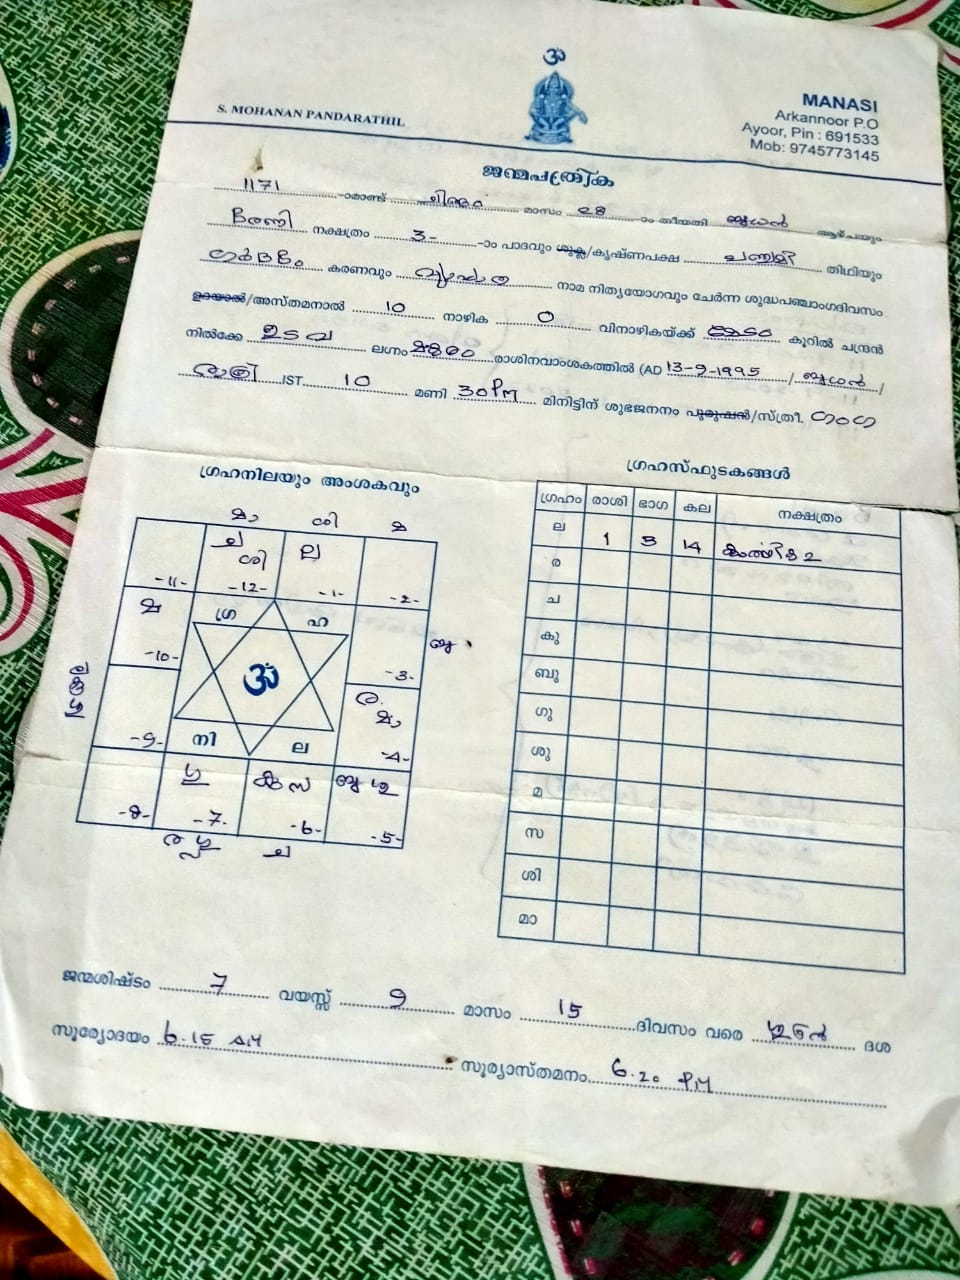 ॐ
S. MOHANAN PANDARATHIL
MANASI
Arkannoor P.O
Ayoor, Pin : 691533
Mob: 9745773145
ജന്മപത്രിക
1171 -ാമാണ്ട് ചിങ്ങം മാസം 28 -ാം തീയതി ബുധൻ ആഴ്ചയും
ഭരണി നക്ഷത്രം 3- -ാം പാദവും ശുക്ല/കൃഷ്ണപക്ഷ പഞ്ചമി തിഥിയും
ഗർദഭം കരണവും നാമ നിത്യയോഗവും ചേർന്ന ശുദ്ധപഞ്ചാംഗദിവസം
ഉദയാൽ/അസ്തമനാൽ 10 നാഴിക 0 വിനാഴികയ്ക്ക് മേടം കൂറിൽ ചന്ദ്രൻ
നിൽക്കേ ഇടവ ലഗ്നം മകരം രാശിനവാംശകത്തിൽ (AD 13-9-1995 / ബുധൻ /
രാത്രി IST 10 മണി 30 PM മിനിട്ടിന് ശുഭജനനം പുരുഷൻ/സ്ത്രീ. ഗംഗ
ഗ്രഹനിലയും അംശകവും
മാ ശി മ
ച ശി ല
-11- -12- -1- -2-
മ ഗ്ര ഹ ബു
-10- ॐ -3-
ര മാ
-9- നി ല -4-
ഗു കു സ ബു ശു
-8- -7- -6- -5-
ച
ഗ്രഹസ്ഫുടകങ്ങൾ
ഗ്രഹം രാശി ഭാഗ കല നക്ഷത്രം
ല 1 3 14 കാർത്തിക 2
ര
ച
കു
ബു
ഗു
ശു
മ
സ
ശി
മാ
ജന്മശിഷ്ടം 7 വയസ്സ് 9 മാസം 15 ദിവസം വരെ ശുക്രൻ ദശ
സൂര്യോദയം 6.15 AM സൂര്യാസ്തമനം 6.20 PM